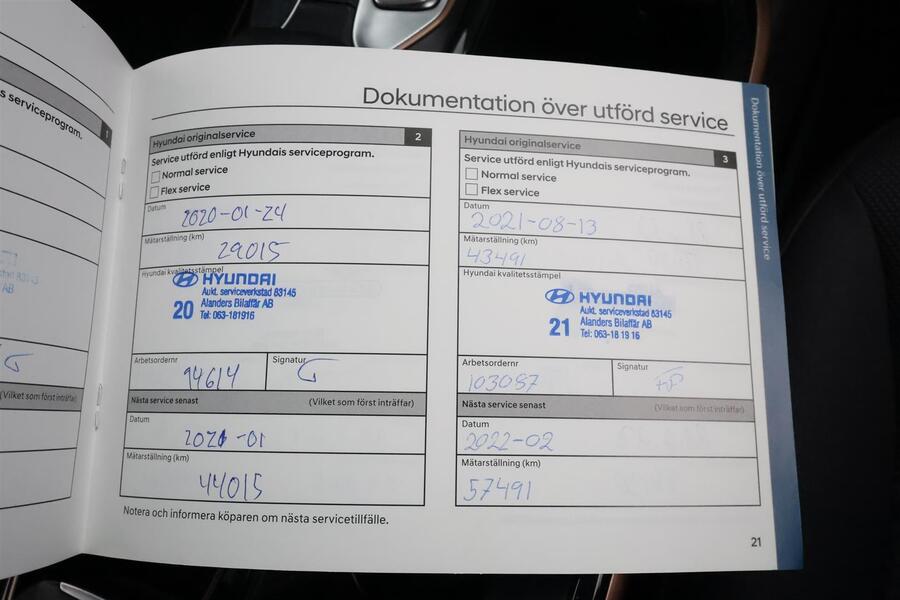 s serviceprogram.
1
(Vilket som först inträffar)
Dokumentation över utförd service
Hyundai originalservice 2
Service utförd enligt Hyundais serviceprogram.
Normal service
Flex service
Datum
2020-01-24
Mätarställning (km)
29015
Hyundai kvalitetsstämpel
HYUNDAI
Aukt. serviceverkstad 83145
20 Alanders Bilaffär AB
Tel: 063-181916
Arbetsordernr Signatur
94614
Nästa service senast (Vilket som först inträffar)
Datum
2021-01
Mätarställning (km)
44015
Hyundai originalservice 3
Service utförd enligt Hyundais serviceprogram.
Normal service
Flex service
Datum
2021-08-13
Mätarställning (km)
43491
Hyundai kvalitetsstämpel
HYUNDAI
Aukt. serviceverkstad 83145
21 Alanders Bilaffär AB
Tel: 063-18 19 16
Arbetsordernr Signatur
103087
Nästa service senast (Vilket som först inträffar)
Datum
2022-02
Mätarställning (km)
57491
Notera och informera köparen om nästa servicetillfälle.
21
Dokumentation över utförd service